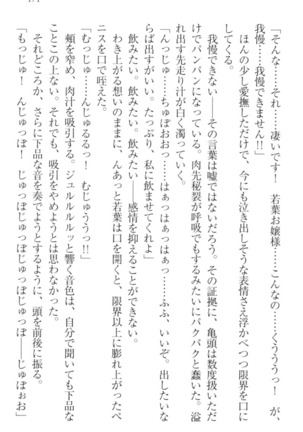 「そ、それ……凄いです！　若葉お嬢様……こんなの……くううっ！　が、
我慢……我慢できません!!」
ほんの少し愛撫しただけで、今にも泣き出しそうな表情さえ浮かべつつ限界を口に
してくる。
我慢できない――その言葉は嘘ではないだろう。その証拠に、亀頭は数度扱いただ
けでパンパンになっている。肉先秘裂が呼吸でもするみたいにパクパクと蠢いた。溢
れ出す先走り汁が白く濁っていく。
「んっじゅ……ちゅぽおおっ……はぁっはぁっはぁっ……ふふ、いいぞ。出したいな
らば出すがいい。たっぷり、私に飲ませてくれよ」
飲みたい。飲みたい。飲みたい――感情を抑えることができない。
わき上がる想いのままに、んあっと若葉は口を開くと、限界以上に膨れ上がったペ
ニスを口で咥えた。
「むっじゅ……んじゅるるるっ！　むじゅううっ!!」
頬を窄め、肉汁を吸引する。ジュルルルルッと響く音色は、自分で聞いても下品な
ことこの上ない。それでも、吸引をやめようとは思わなかった。
それどころか、さらに下品な音を奏でようとするように、頭を前後に振る。
「もっじゅ！　んじゅっぽ！　じゅっぽじゅっぽじゅっぽじゅっぽ――じゅぽぉお